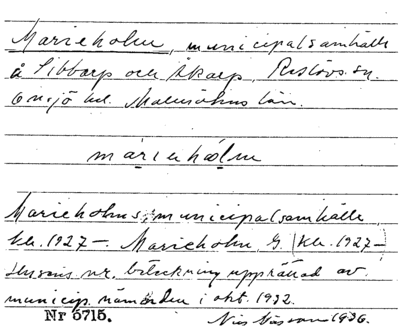 Marieholm, municipalsamhälle
å Sibbarp och Åkarp, Reslövs sn.
Onsjö hd. Malmöhus län.
marieholm
Marieholms municipalsamhälle
kh. 1927 – Marieholm, G. kh. 1927 –
Husens nr. beteckning upprättad av
municip. nämnden i okt. 1932.
Nr 5715.
Nils Nilsson 1936.